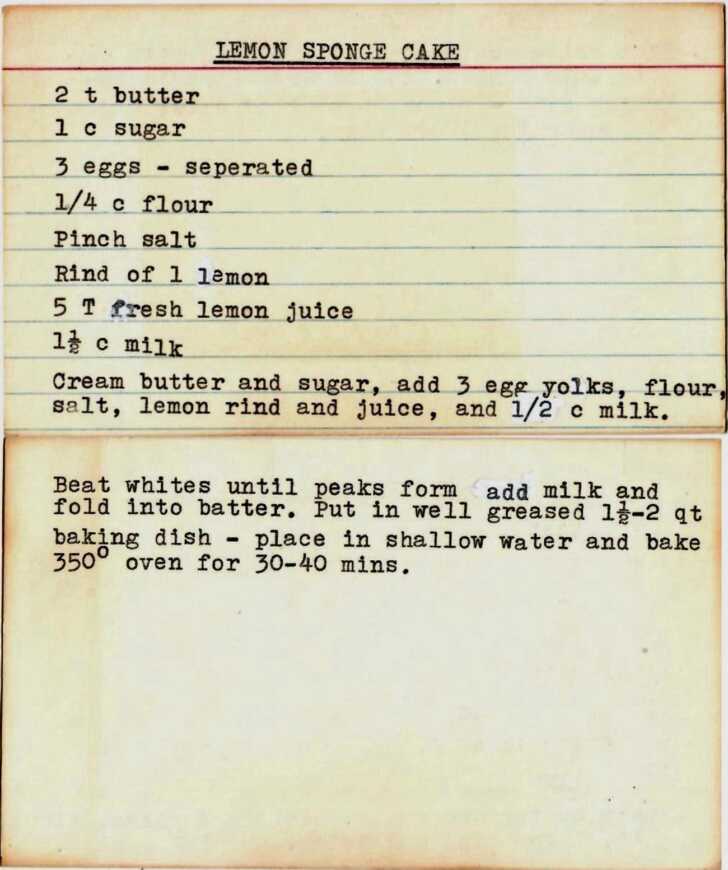 LEMON SPONGE CAKE
2 t butter
1 c sugar
3 eggs - seperated
1/4 c flour
Pinch salt
Rind of 1 lemon
5 T fresh lemon juice
1½ c milk
Cream butter and sugar, add 3 egg yolks, flour,
salt, lemon rind and juice, and 1/2 c milk.
Beat whites until peaks form add milk and
fold into batter. Put in well greased 1½-2 qt
baking dish - place in shallow water and bake
350° oven for 30-40 mins.